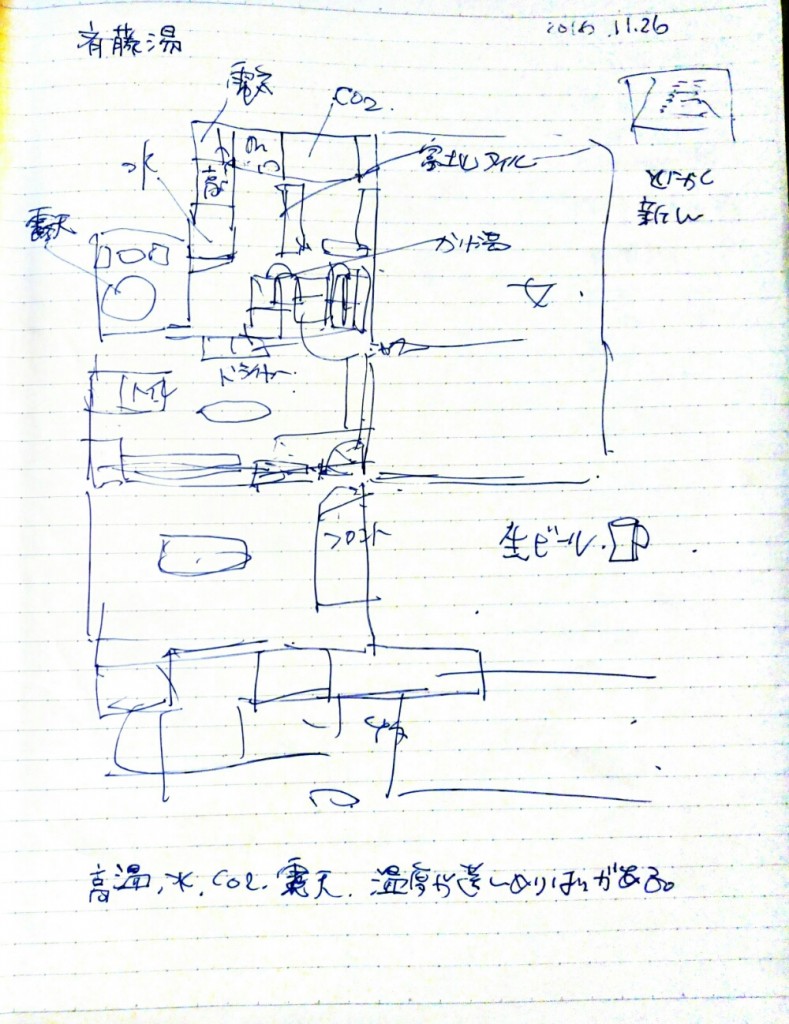 斉藤湯
2016.11.26
電気
CO2.
高温
水
富士山タイル
とにかく
新しい
露天
かけ湯
女.
ドライヤー
トイレ
フロント
生ビール.
高温,水,CO2.露天.温度が違いめりはりがある。